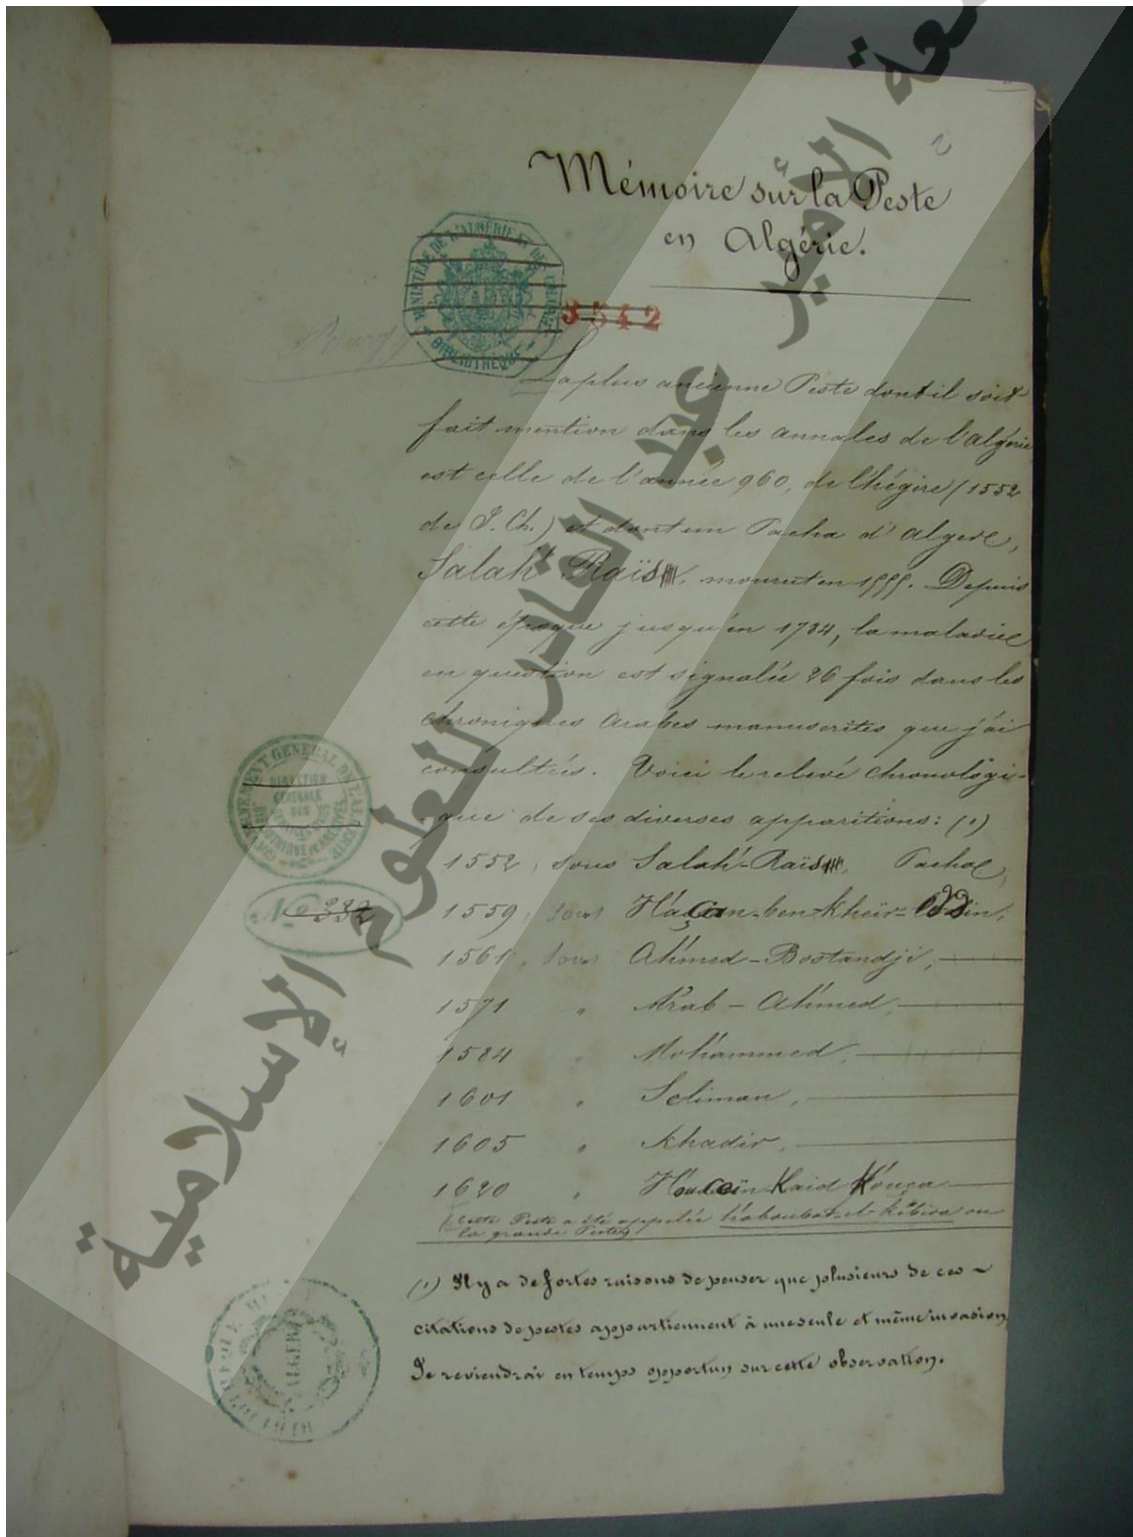 Mémoire sur la Peste
en Algérie.
MINISTÈRE DE L'ALGÉRIE ET DES COLONIES
BIBLIOTHÈQUE
3542
La plus ancienne Peste dont il soit
fait mention dans les annales de l'algérie
est celle de l'année 960, de l'hégire (1552
de J. Ch.) et dont un Pacha d'alger,
Salah' Raïs, mourut en 1555. Depuis
cette époque jusqu'en 1784, la maladie
en question est signalée 26 fois dans les
chroniques arabes manuscrites que j'ai
consultées. Voici le relevé chronologi-
que de ses diverses apparitions: (1)
1552, sous Salah'-Raïs, Pacha,
1559, sous H'açan-ben-Kheïr-Eddin,
1561, sous Ah'med-Bostandji,
1571 " A'rab-Ah'med,
1584 " Moh'ammed,
1601 " Seliman,
1605 " Khadir,
1620 " H'ouceïn Kaïd K'ouça
Cette Peste a été appelée h'aboubat-el-kebira ou
la grande Peste
(1) Il y a de fortes raisons de penser que plusieurs de ces
citations de pestes appartiennent à une seule et même invasion.
Je reviendrai en temps opportun sur cette observation.
GOUVERNEMENT GÉNÉRAL DE L'ALGÉRIE
DIRECTION
GÉNÉRALE
DES
No 332
ALGER
الأمير عبد القادر للعلوم الإسلامية